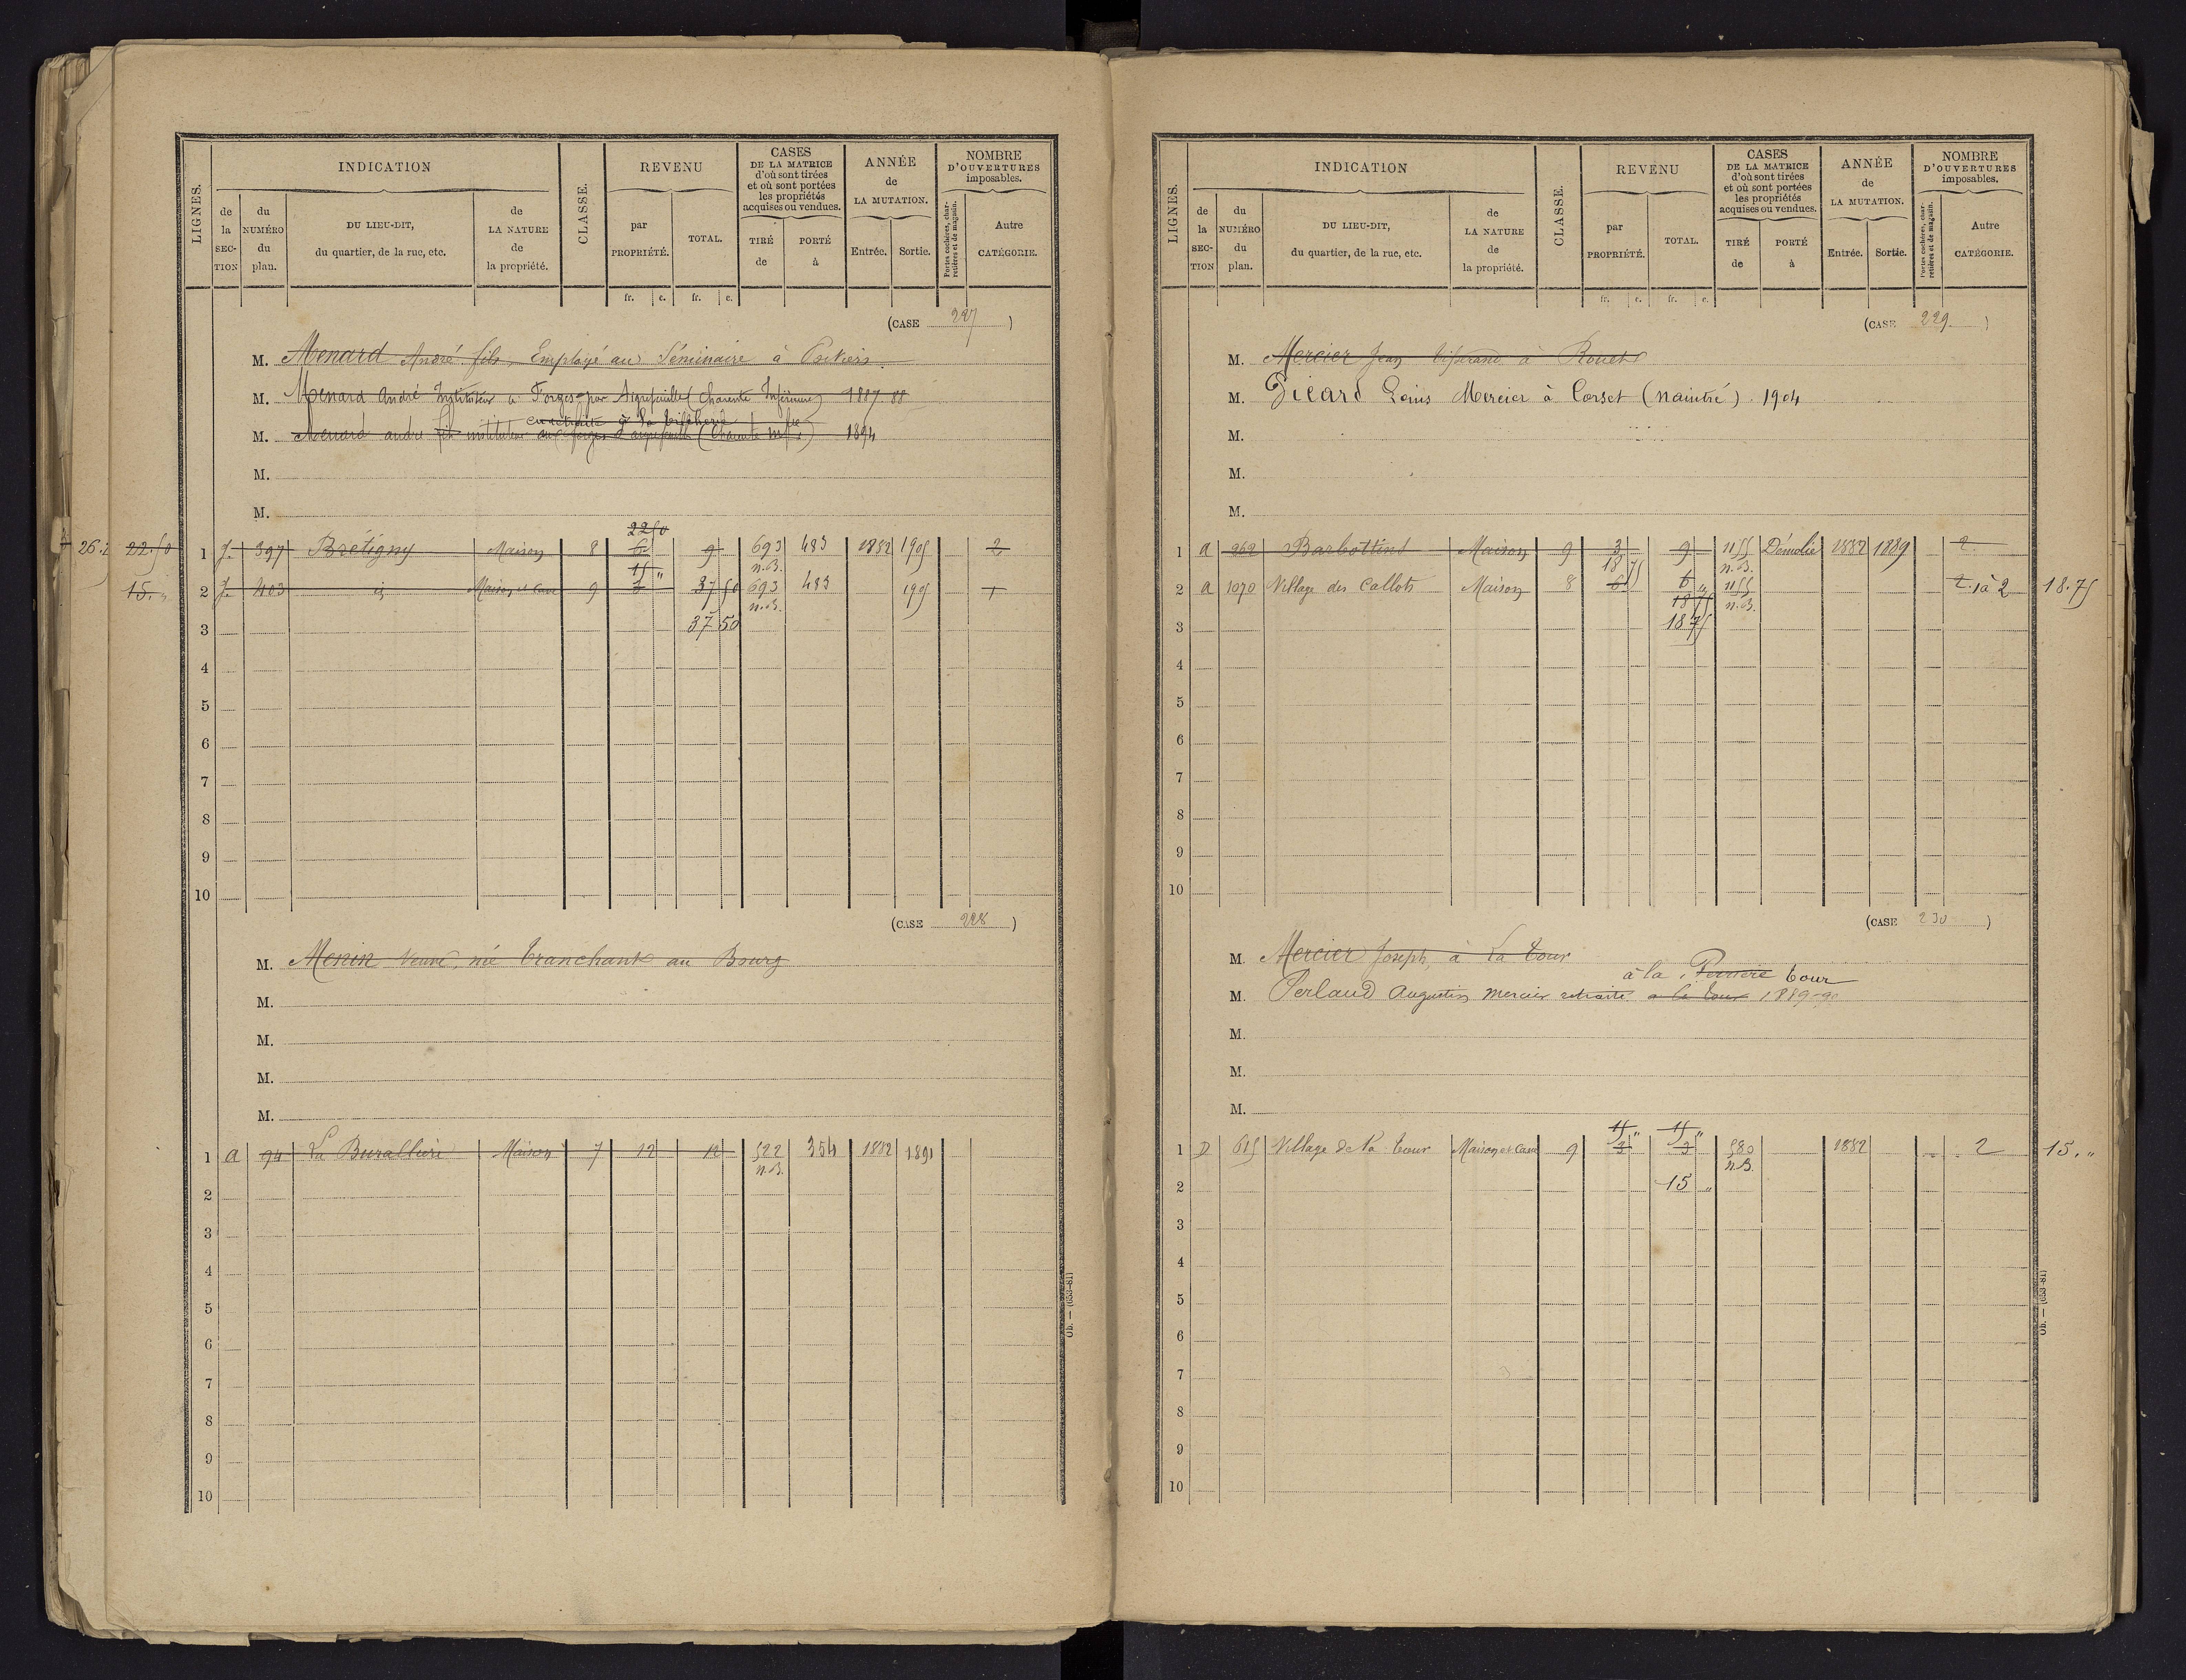 LIGNES.
INDICATION
CLASSE.
REVENU
CASES
DE LA MATRICE
d'où sont tirées
et où sont portées
les propriétés
acquises ou vendues.
ANNÉE
de
LA MUTATION.
NOMBRE
D'OUVERTURES
imposables.
de la SECTION
du NUMÉRO du plan.
DU LIEU-DIT,
du quartier, de la rue, etc.
de
LA NATURE
de
la propriété.
par
PROPRIÉTÉ.
TOTAL.
TIRÉ de
PORTÉ à
Entrée.
Sortie.
Portes cochères, charretières et de magasin.
Autre
CATÉGORIE.
fr. c. fr. c.
(CASE 227)
M. Menard André fils, Employé au Séminaire à Poitiers
M. Menard André Instituteur à Forges par Aigrefeuille (Charente Inférieure) 1887-88
en retraite à la
M. Menard andré fils instituteur aux forges d'aigrefeuille (Charente infre) 1894
M.
M.
22 50
26.2 22.50 1 J. 397 Brétigny Maison 8 6 9 693 483 1882 1905 2
15 " n.B.
15. " 2 J. 403 id Maison et Cave 9 3 37 50 693 483 1905 1
n.B.
3 37 50
4
5
6
7
8
9
10
(CASE 228)
M. Menin Veuve, née Tranchant au Bourg
M.
M.
M.
M.
1 A 94 La Buralliere Maison 7 12 12 522 354 1882 1891
n.B.
2
3
4
5
6
7
8
9
10
Ob. — (653-81)
LIGNES.
INDICATION
CLASSE.
REVENU
CASES
DE LA MATRICE
d'où sont tirées
et où sont portées
les propriétés
acquises ou vendues.
ANNÉE
de
LA MUTATION.
NOMBRE
D'OUVERTURES
imposables.
de la SECTION
du NUMÉRO du plan.
DU LIEU-DIT,
du quartier, de la rue, etc.
de
LA NATURE
de
la propriété.
par
PROPRIÉTÉ.
TOTAL.
TIRÉ de
PORTÉ à
Entrée.
Sortie.
Portes cochères, charretières et de magasin.
Autre
CATÉGORIE.
fr. c. fr. c.
(CASE 229)
M. Mercier Jean Tisserand à Rouet
M. Picard Louis Mercier à Corset (naintré) 1904
M.
M.
M.
1 A 262 Barbottins Maison 9 3 9 1155 Démolie 1882 1889 2
18 75 n.B.
2 A 1070 Village des Callots Maison 8 6 6 " 1155 2. 1 à 2 18.75
18 75 n.B.
3 18 75
4
5
6
7
8
9
10
(CASE 230)
M. Mercier Joseph, à La Tour
à la Perriere tour
M. Perlaud Augustin Mercier retraité à la tour 1889-90
M.
M.
M.
15 " 15 "
1 D 615 Village de la tour Maison et Cave 9 3 3 580 1882 2 15. "
n.B.
2 15 "
3
4
5
6
7
8
9
10
Ob. — (653-81)